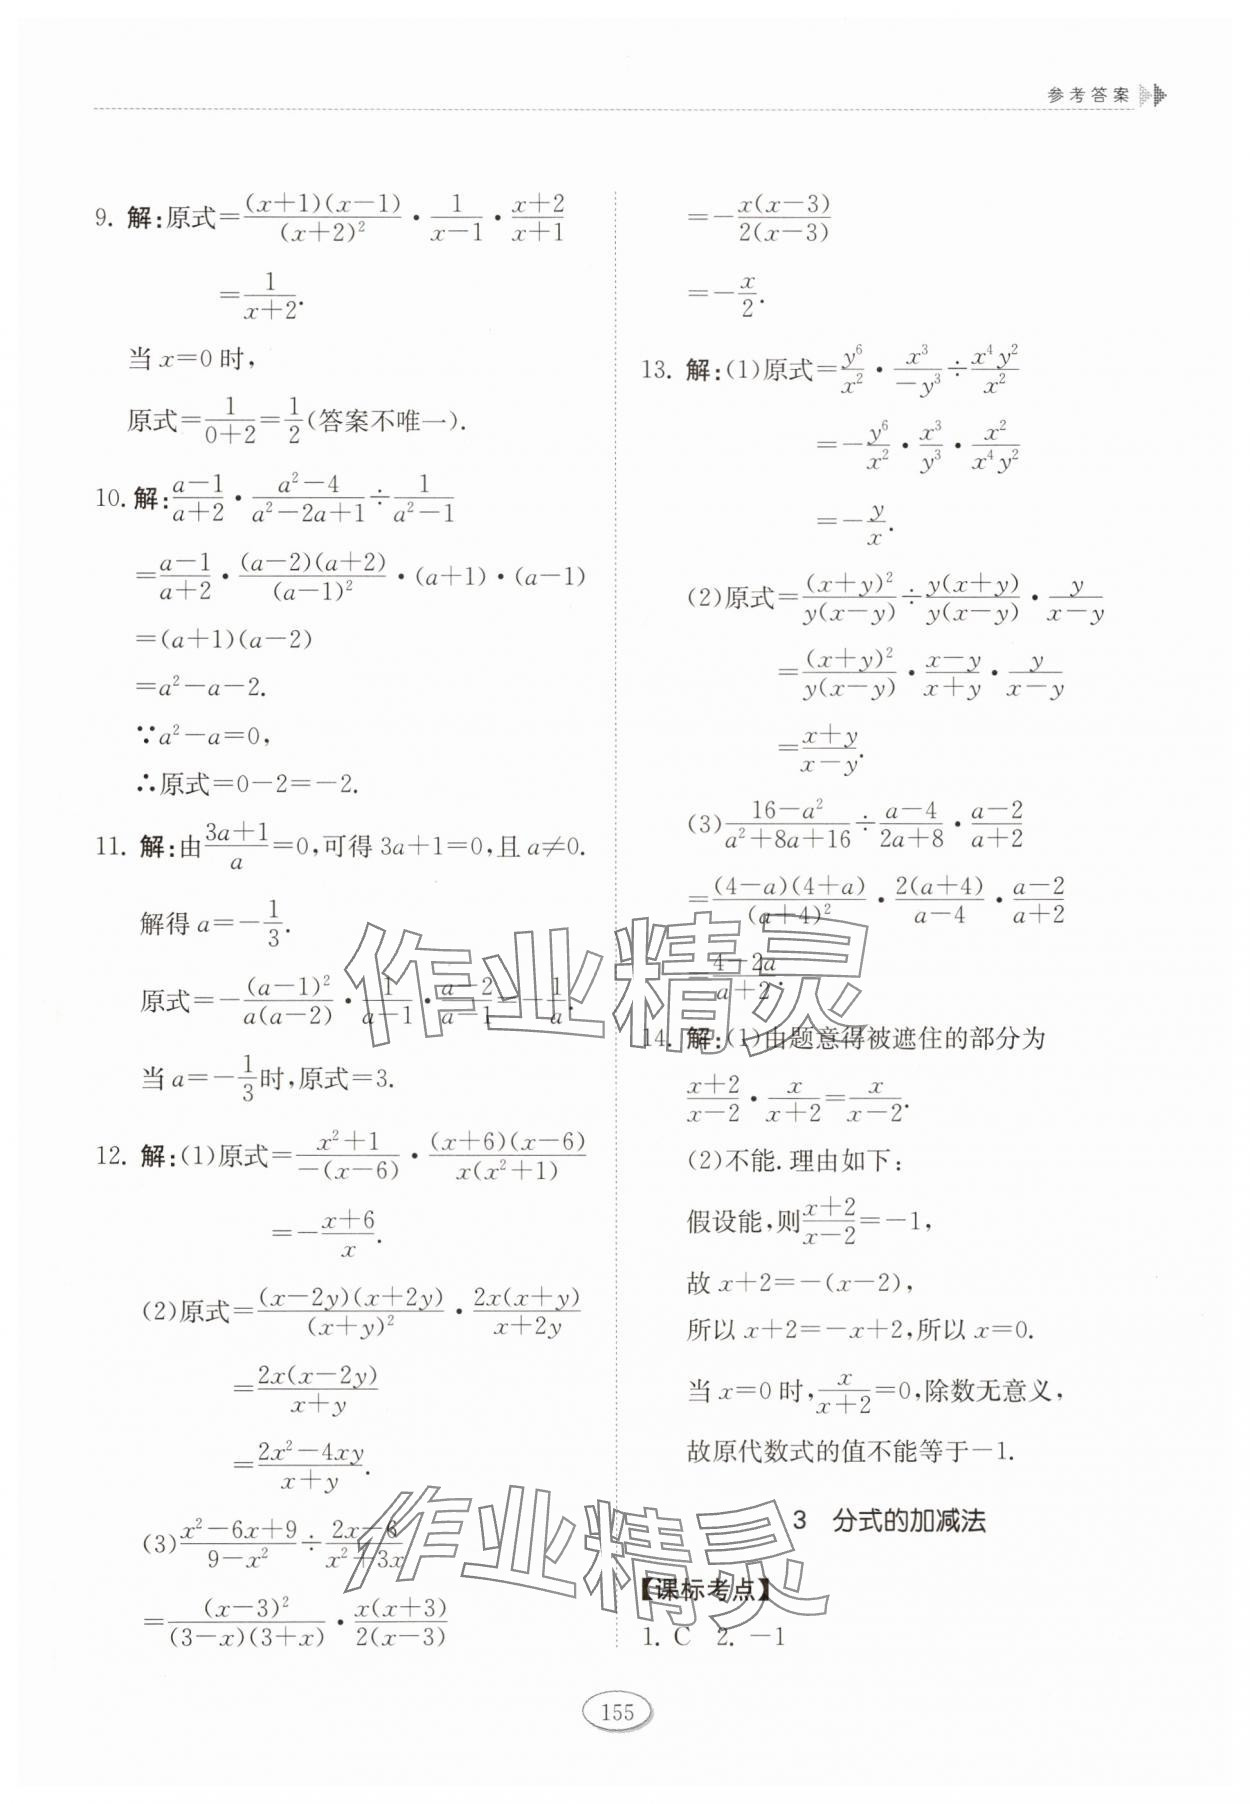 参考答案
9. 解:原式=\frac{(x+1)(x-1)}{(x+2)^2}·\frac{1}{x-1}·\frac{x+2}{x+1}
=\frac{1}{x+2}.
当 x=0 时,
原式=\frac{1}{0+2}=\frac{1}{2}(答案不唯一).
10. 解:\frac{a-1}{a+2}·\frac{a^2-4}{a^2-2a+1}÷\frac{1}{a^2-1}
=\frac{a-1}{a+2}·\frac{(a-2)(a+2)}{(a-1)^2}·(a+1)·(a-1)
=(a+1)(a-2)
=a^2-a-2.
∵a^2-a=0,
∴原式=0-2=-2.
11. 解:由\frac{3a+1}{a}=0,可得 3a+1=0,且 a≠0.
解得 a=-\frac{1}{3}.
原式=-\frac{(a-1)^2}{a(a-2)}·\frac{1}{a-1}·\frac{a-2}{a-1}=-\frac{1}{a}.
当 a=-\frac{1}{3}时,原式=3.
12. 解:(1)原式=\frac{x^2+1}{-(x-6)}·\frac{(x+6)(x-6)}{x(x^2+1)}
=-\frac{x+6}{x}.
(2)原式=\frac{(x-2y)(x+2y)}{(x+y)^2}·\frac{2x(x+y)}{x+2y}
=\frac{2x(x-2y)}{x+y}
=\frac{2x^2-4xy}{x+y}.
(3)\frac{x^2-6x+9}{9-x^2}÷\frac{2x-6}{x^2+3x}
=\frac{(x-3)^2}{(3-x)(3+x)}·\frac{x(x+3)}{2(x-3)}
=-\frac{x(x-3)}{2(x-3)}
=-\frac{x}{2}.
13. 解:(1)原式=\frac{y^6}{x^2}·\frac{x^3}{-y^3}÷\frac{x^4y^2}{x^2}
=-\frac{y^6}{x^2}·\frac{x^3}{y^3}·\frac{x^2}{x^4y^2}
=-\frac{y}{x}.
(2)原式=\frac{(x+y)^2}{y(x-y)}÷\frac{y(x+y)}{y(x-y)}·\frac{y}{x-y}
=\frac{(x+y)^2}{y(x-y)}·\frac{x-y}{x+y}·\frac{y}{x-y}
=\frac{x+y}{x-y}.
(3)\frac{16-a^2}{a^2+8a+16}÷\frac{a-4}{2a+8}·\frac{a-2}{a+2}
=\frac{(4-a)(4+a)}{(a+4)^2}·\frac{2(a+4)}{a-4}·\frac{a-2}{a+2}
=\frac{4-2a}{a+2}.
14. 解:(1)由题意得被遮住的部分为
\frac{x+2}{x-2}·\frac{x}{x+2}=\frac{x}{x-2}.
(2)不能.理由如下:
假设能,则\frac{x+2}{x-2}=-1,
故 x+2=-(x-2),
所以 x+2=-x+2,所以 x=0.
当 x=0 时,\frac{x}{x+2}=0,除数无意义,
故原代数式的值不能等于-1.
3 分式的加减法
【课标考点】
1. C 2. -1
155
作业精灵
作业精灵